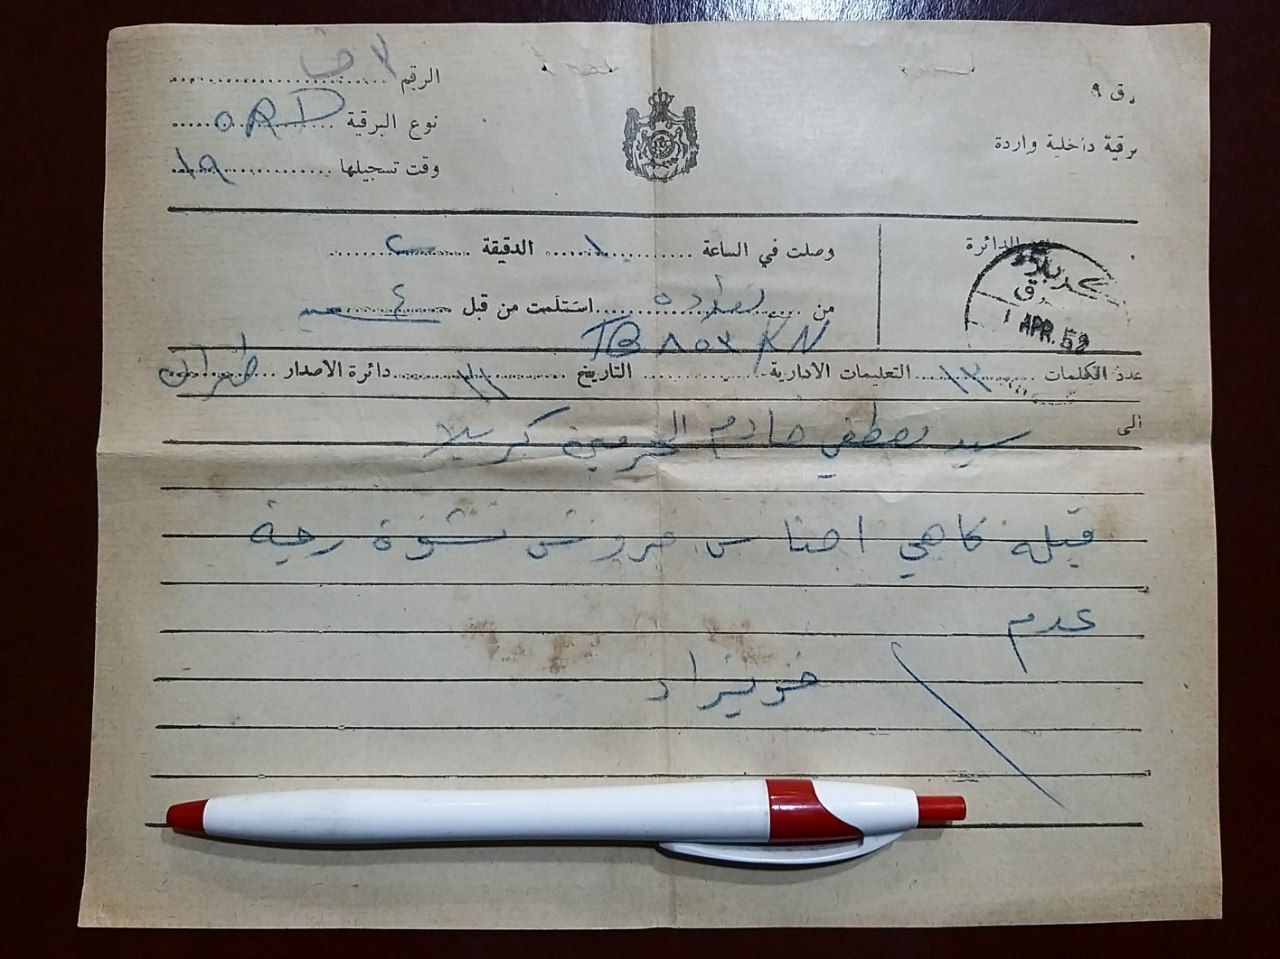 الرقم ٣ ق
ق ٩
نوع البرقية ORD
برقية داخلية واردة
وقت تسجيلها ١٩
الدائرة
كربلاء
ق
1 APR. 52
وصلت في الساعة ١٠ الدقيقة ٢
من بغداد ٥ استلمت من قبل ٤
TB ٨٥٣ KN
عدد الكلمات ١٣ التعليمات الادارية التاريخ ٣١ دائرة الاصدار طهران
الى
سيد مصطفى خادم الحرمين كربلا
قبله كاهي اجناس فروش نشوة
عدم